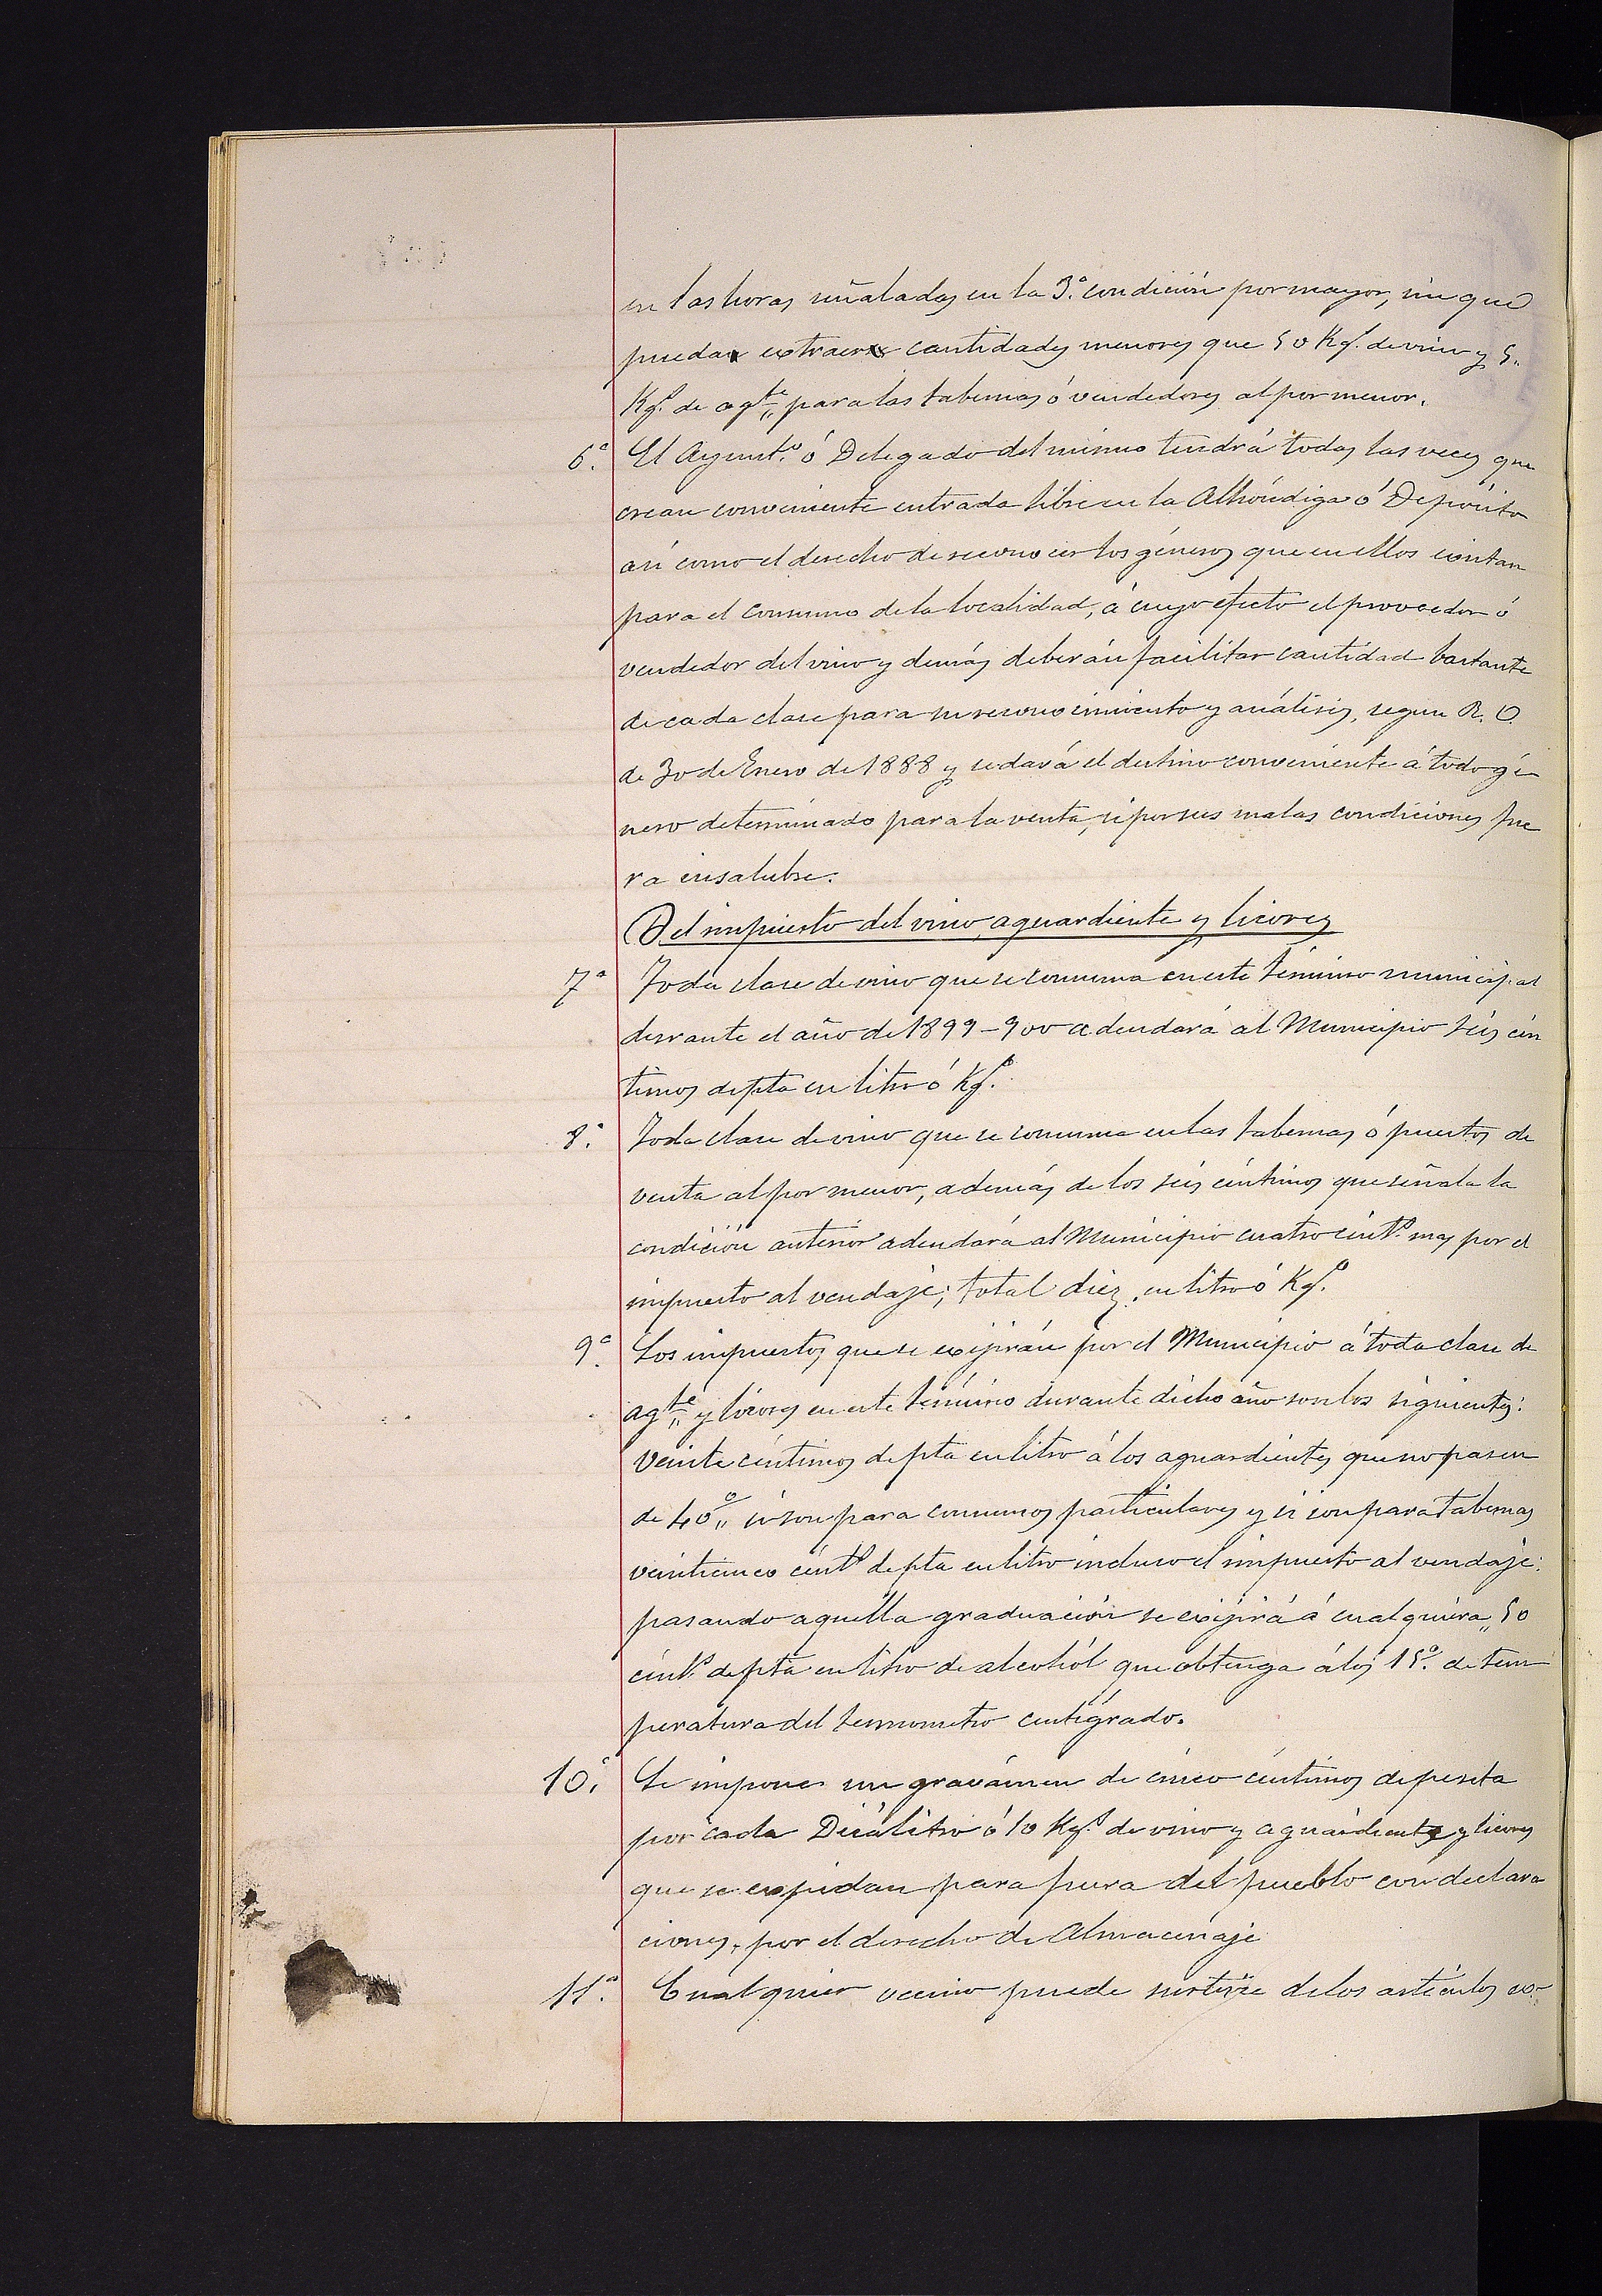 en las horas señaladas en la 3.ª condición por mayor, sin que
puedan extraerse cantidades menores que 50 Kg.º de vino y 5.
Kg.º de agte para las tabernas ó vendedores al por menor.
6.ª El Ayuntº ó Delegado del mismo tendrá todas las veces que
crean conveniente entrada libre en la Alhóndiga ó Depósito
así como el derecho de reconocer los géneros que en ellos existan
para el consumo de la localidad, á cuyo efecto el proveedor ó
vendedor del vino y demás deberán facilitar cantidad bastante
de cada clase para su reconocimiento y análisis, segun R. O.
de 30 de Enero de 1888 y se dará el destino conveniente á todo gé
nero determinado para la venta, si por sus malas condiciones fue
ra insalubre.
Del impuesto del vino, aguardiente y licores
7ª Toda clase de vino que se consuma en este término municipal
durante el año de 1899-900 adeudará al Municipio seis cén
timos de pta en litro ó Kg.º
8.ª Toda clase de vino que se consuma en las tabernas ó puestos de
venta al por menor, además de los seis céntimos que señala la
condición anterior adeudará al Municipio cuatro céntº mas por el
impuesto al vendaje; total diez, en litro ó Kg.º
9.ª Los impuestos que se exijirán por el Municipio á toda clase de
agte y licores en este término durante dicho año son los siguientes:
Veinte céntimos de pta en litro á los aguardientes que no pasen
de 40º si son para consumos particulares y si son para tabernas
veinticinco céntº de pta en litro incluso el impuesto al vendaje:
pasando aquella graduación se exijirá á cualquiera 50
céntº de pta en litro de alcohól que obtenga á los 15º. de tem
peratura del termometro centígrado.
10.ª Se impone un gravámen de cinco céntimos de peseta
por cada Decálitro ó 10 Kg.º de vino y aguardiente y licores
que se expidan para fuera del pueblo con declara
ciones, por el derecho de Almacenaje
11.ª Cualquier vecino puede surtirse de los artículos ex-